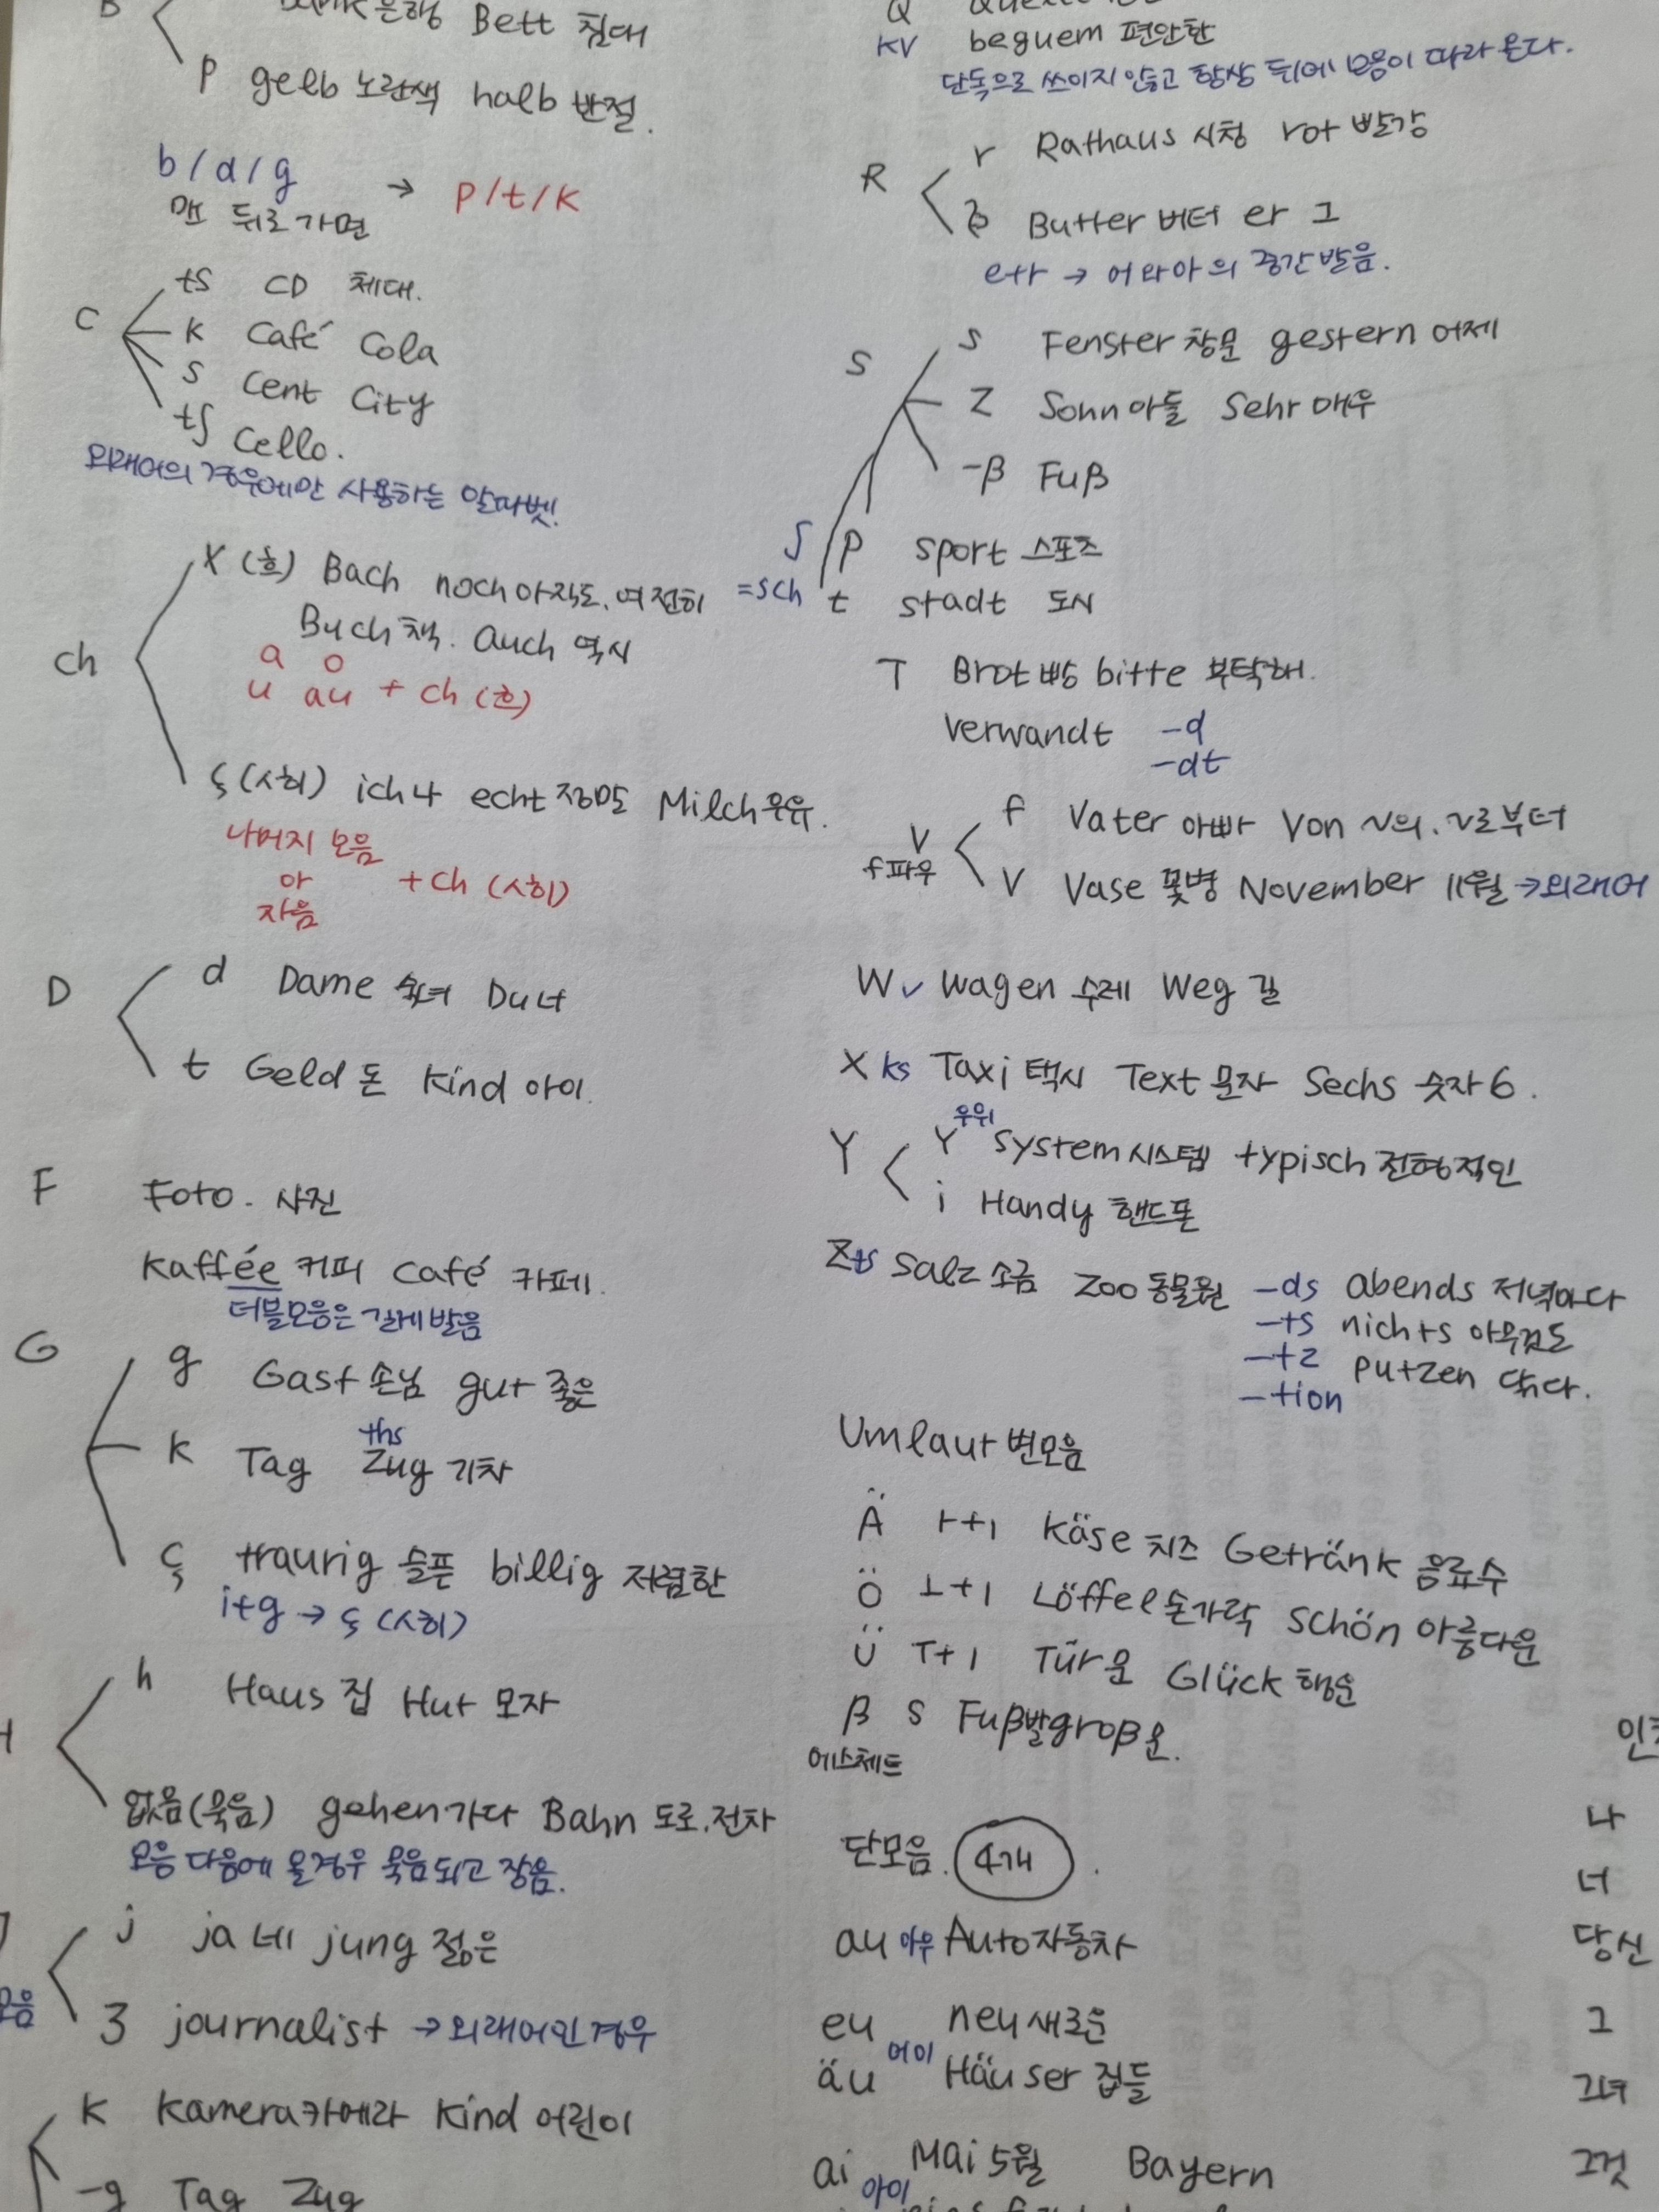 B Bank 은행 Bett 침대
p gelb 노란색 halb 반절.
b/d/g → p/t/k
맨 뒤로 가면
C ts CD 체데.
k Café Cola
s Cent City
tʃ Cello.
외래어의 경우에만 사용하는 알파벳!
ch
x (흐) Bach noch 아직도, 여전히
Buch 책. auch 역시
a o
u au + ch (흐)
ς (시히) ich 나 echt 정말 Milch 우유.
나머지 모음
아
자음
+ ch (시히)
D d Dame 숙녀 Du 너
t Geld 돈 Kind 아이.
F Foto. 사진
Kaffée 커피 Café 카페.
더블모음은 길게 발음
G g Gast 손님 gut 좋은
ths
k Tag Zug 기차
ς traurig 슬픈 billig 저렴한
i+g → ς (시히)
h Haus 집 Hut 모자
없음(묵음) gehen 가다 Bahn 도로, 전차
모음 다음에 올경우 묵음되고 장음.
j ja 네 jung 젊은
모음
3 journalist → 외래어인 경우
k Kamera 카메라 Kind 어린이
-g Tag Zug
Q
kv bequem 편안한
단독으로 쓰이지 않고 항상 뒤에 모음이 따라온다.
R r Rathaus 시청 rot 빨강
Butter 버터 er 그
e+r → 어와 아의 중간발음.
S s Fenster 창문 gestern 어제
z Sohn 아들 Sehr 매우
-β Fuβ
ʃ p sport 스포츠
=sch t stadt 도시
T Brot 빵 bitte 부탁해.
verwandt -d
-dt
V f Vater 아빠 Von ~의. ~로부터
f파우 v Vase 꽃병 November 11월 → 외래어
W v Wagen 수레 Weg 길
X ks Taxi 택시 Text 문자 Sechs 숫자 6.
우위
Y Y System 시스템 typisch 전형적인
i Handy 핸드폰
Z ts Salz 소금 Zoo 동물원 -ds abends 저녁마다
-ts nichts 아무것도
-tz putzen 닦다.
-tion
Umlaut 변모음
Ä ㅏ+ㅣ Käse 치즈 Getränk 음료수
Ö ㅗ+ㅣ Löffel 숟가락 schön 아름다운
Ü ㅜ+ㅣ Tür 문 Glück 행운
β s Fuβ 발 groβ 큰.
에스체트
단모음. 4개.
au 아우 Auto 자동차
eu neu 새로운
어이
äu Häuser 집들
ai Mai 5월 Bayern
아이
나
너
당신
그
그녀
그것